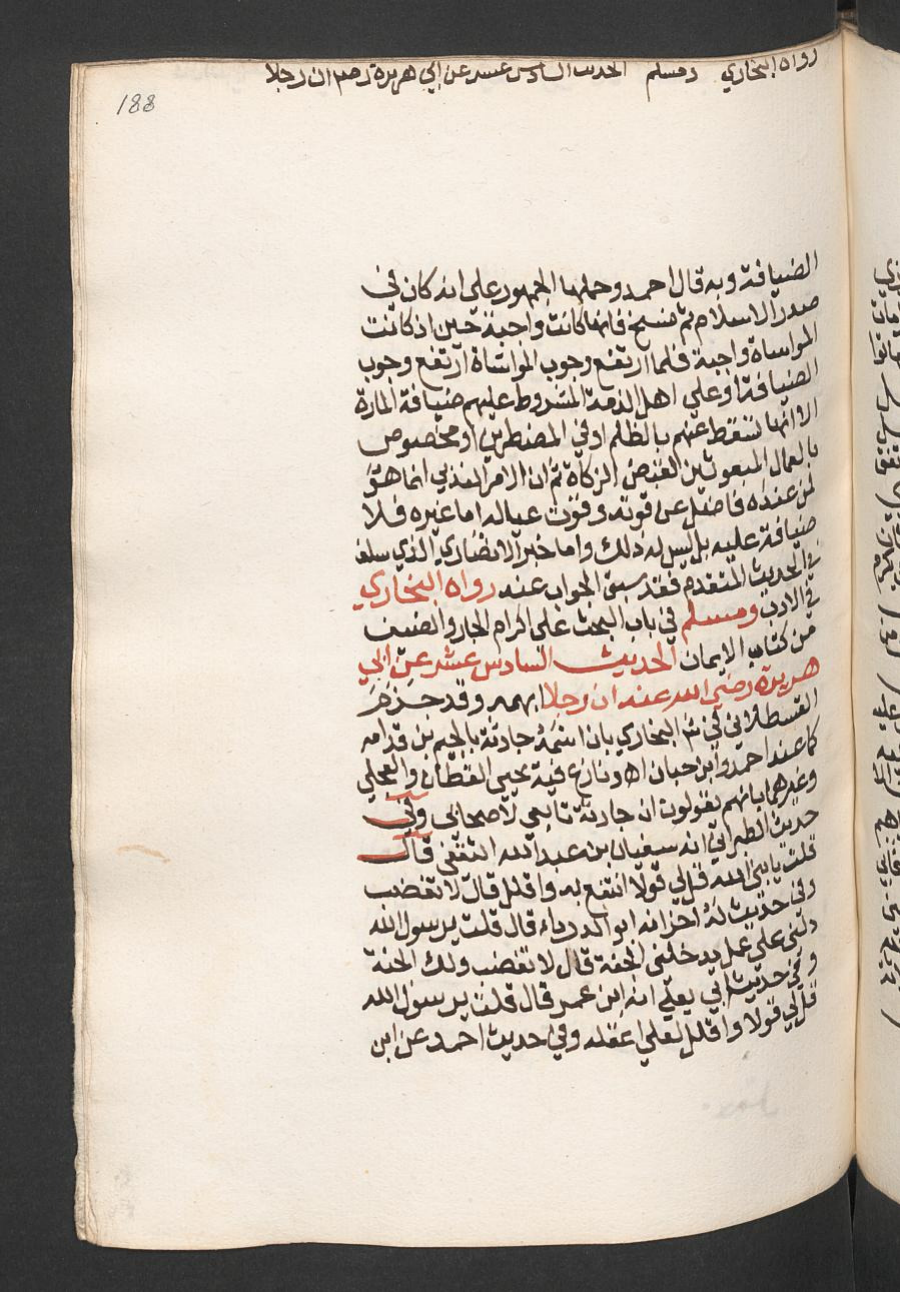 رواه البخاري ومسلم الحديث السادس عشر عن ابي هريرة رضه ان رجلا
188
الضيافة وبه قال احمد وحملها الجمهور على انه كان في
صدر الاسلام ثم نسخ فانها كانت واجبة حين اذ كانت
المواساة واجبة فلما ارتفع وجوب المواساة ارتفع وجوب
الضيافة او على اهل الذمة المشروط عليهم ضيافة المارة
الا انها تسقط عنهم بالظلم او في المضطرين او مخصوص
بالعمال المبعوثين لقبض الزكاة ثم ان الامر الندبي انما هو
لمن عنده فاضل عن قوته وقوت عياله اما غيره فلا
ضيافة عليه بل ليس له ذلك واما خبر الانصاري الذي سلف
في الحديث المتقدم فقد سبق الجواب عنه رواه البخاري
في الادب ومسلم في باب البحث على اكرام الجار والضيف
من كتاب الايمان الحديث السادس عشر عن ابي
هريرة رضي الله عنه ان رجلا ابهمه وقد جزم
القسطلاني في ش البخاري بان اسمه جارية بالجيم بن قدامه
كما عند احمد وابن حبان اه ونازع فيه يحيى القطان والعجلي
وغيرهما بانهم يقولون ان جارية تابعي لا صحابي وفي
حديث الطبراني انه سفيان بن عبد الله الثقفي قال
قلت يا نبي الله قل لي قولا انتفع به واقلل قال لا تغضب
وفي حديث له اخر انه ابو الدرداء قال قلت يرسول الله
دلني على عمل يدخلني الجنة قال لا تغضب ولك الجنة
وفي حديث ابي يعلي انه ابن عمر قال قلت يرسول الله
قل لي قولا واقلل لعلي اعقله وفي حديث احمد عن ابن